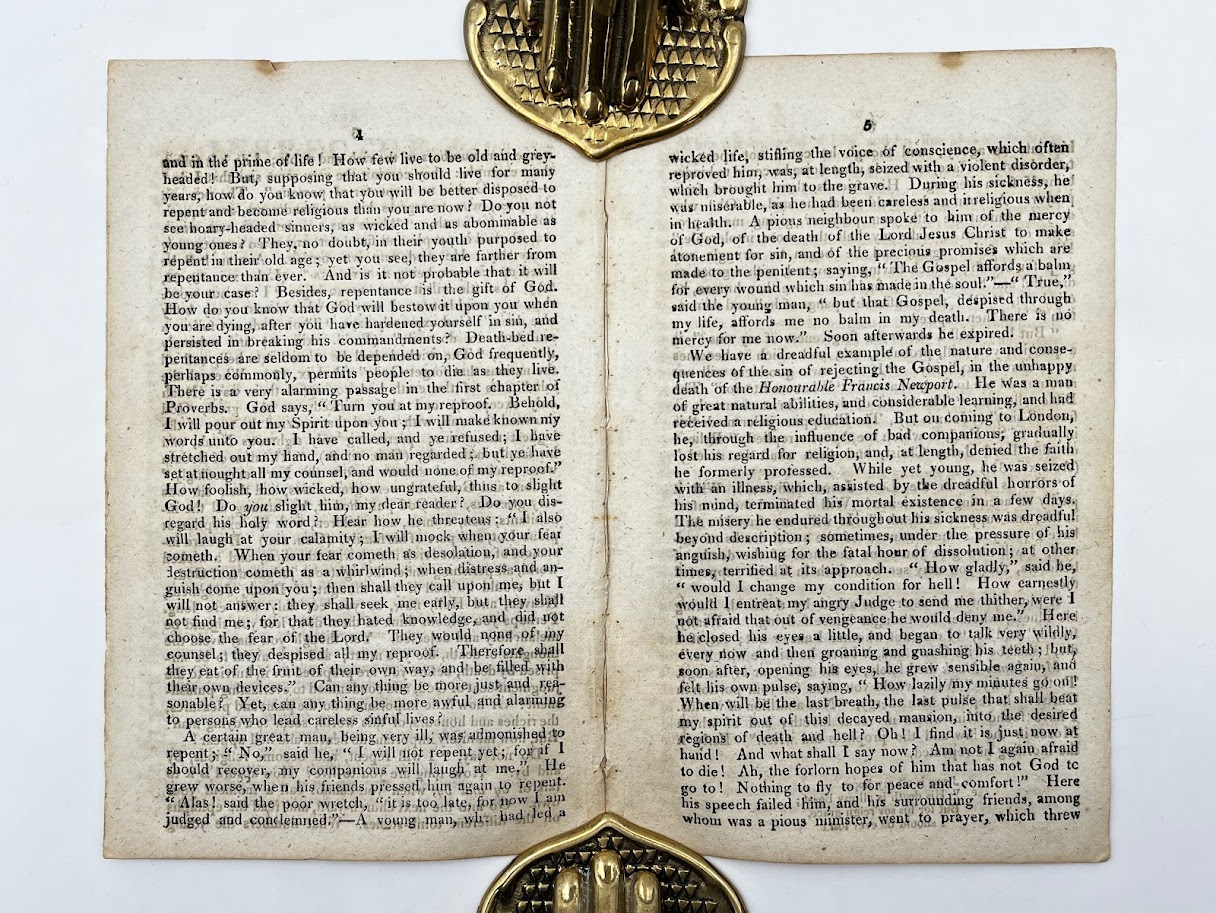 4
and in the prime of life! How few live to be old and grey-
headed! But, supposing that you should live for many
years, how do you know that you will be better disposed to
repent and become religious than you are now? Do you not
see hoary-headed sinners, as wicked and as abominable as
young ones? They, no doubt, in their youth purposed to
repent in their old age; yet you see, they are farther from
repentance than ever. And is it not probable that it will
be your case? Besides, repentance is the gift of God.
How do you know that God will bestow it upon you when
you are dying, after you have hardened yourself in sin, and
persisted in breaking his commandments? Death-bed re-
pentances are seldom to be depended on, God frequently,
perhaps commonly, permits people to die as they live.
There is a very alarming passage in the first chapter of
Proverbs. God says, “ Turn you at my reproof. Behold,
I will pour out my Spirit upon you; I will make known my
words unto you. I have called, and ye refused; I have
stretched out my hand, and no man regarded; but ye have
set at nought all my counsel, and would none of my reproof.”
How foolish, how wicked, how ungrateful, thus to slight
God! Do you slight him, my dear reader? Do you dis-
regard his holy word? Hear how he threatens: “ I also
will laugh at your calamity; I will mock when your fear
cometh. When your fear cometh as desolation, and your
destruction cometh as a whirlwind; when distress and an-
guish come upon you; then shall they call upon me, but I
will not answer: they shall seek me early, but they shall
not find me; for that they hated knowledge, and did not
choose the fear of the Lord. They would none of my
counsel; they despised all my reproof. Therefore shall
they eat of the fruit of their own way, and be filled with
their own devices.” Can any thing be more just and rea-
sonable? Yet, can any thing be more awful and alarming
to persons who lead careless sinful lives?
A certain great man, being very ill, was admonished to
repent; “ No,” said he, “ I will not repent yet; for if I
should recover, my companions will laugh at me.” He
grew worse, when his friends pressed him again to repent.
“ Alas! said the poor wretch, “ it is too late, for now I am
judged and condemned.”—A young man, who had led a
5
wicked life, stifling the voice of conscience, which often
reproved him, was, at length, seized with a violent disorder,
which brought him to the grave. During his sickness, he
was miserable, as he had been careless and irreligious when
in health. A pious neighbour spoke to him of the mercy
of God, of the death of the Lord Jesus Christ to make
atonement for sin, and of the precious promises which are
made to the penitent; saying, “ The Gospel affords a balm
for every wound which sin has made in the soul.”—“ True,”
said the young man, “ but that Gospel, despised through
my life, affords me no balm in my death. There is no
mercy for me now.” Soon afterwards he expired.
We have a dreadful example of the nature and conse-
quences of the sin of rejecting the Gospel, in the unhappy
death of the Honourable Francis Newport. He was a man
of great natural abilities, and considerable learning, and had
received a religious education. But on coming to London,
he, through the influence of bad companions, gradually
lost his regard for religion, and, at length, denied the faith
he formerly professed. While yet young, he was seized
with an illness, which, assisted by the dreadful horrors of
his mind, terminated his mortal existence in a few days.
The misery he endured throughout his sickness was dreadful
beyond description; sometimes, under the pressure of his
anguish, wishing for the fatal hour of dissolution; at other
times, terrified at its approach. “ How gladly,” said he,
“ would I change my condition for hell! How earnestly
would I entreat my angry Judge to send me thither, were I
not afraid that out of vengeance he would deny me.” Here
he closed his eyes a little, and began to talk very wildly,
every now and then groaning and gnashing his teeth; but,
soon after, opening his eyes, he grew sensible again, and
felt his own pulse, saying, “ How lazily my minutes go on!
When will be the last breath, the last pulse that shall beat
my spirit out of this decayed mansion, into the desired
regions of death and hell? Oh! I find it is just now at
hand! And what shall I say now? Am not I again afraid
to die! Ah, the forlorn hopes of him that has not God to
go to! Nothing to fly to for peace and comfort!” Here
his speech failed him, and his surrounding friends, among
whom was a pious minister, went to prayer, which threw